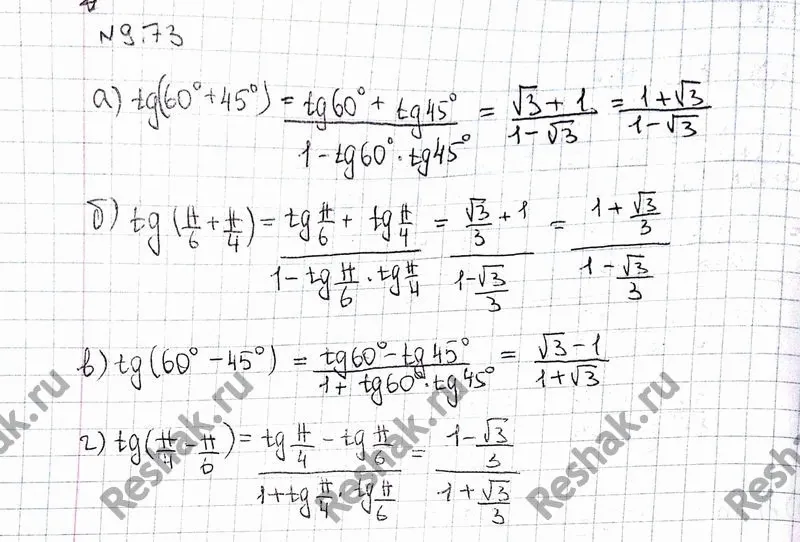 N9.73
а) tg(60°+45°) = (tg60° + tg45°)/(1 - tg60°·tg45°) = (√3 + 1)/(1 - √3) = (1 + √3)/(1 - √3)
б) tg(π/6 + π/4) = (tg π/6 + tg π/4)/(1 - tg π/6 · tg π/4) = (√3/3 + 1)/(1 - √3/3) = (1 + √3/3)/(1 - √3/3)
в) tg(60° - 45°) = (tg60° - tg45°)/(1 + tg60°·tg45°) = (√3 - 1)/(1 + √3)
г) tg(π/4 - π/6) = (tg π/4 - tg π/6)/(1 + tg π/4 · tg π/6) = (1 - √3/3)/(1 + √3/3)
Reshak.ru
Reshak.ru
Reshak.ru
Reshak.ru